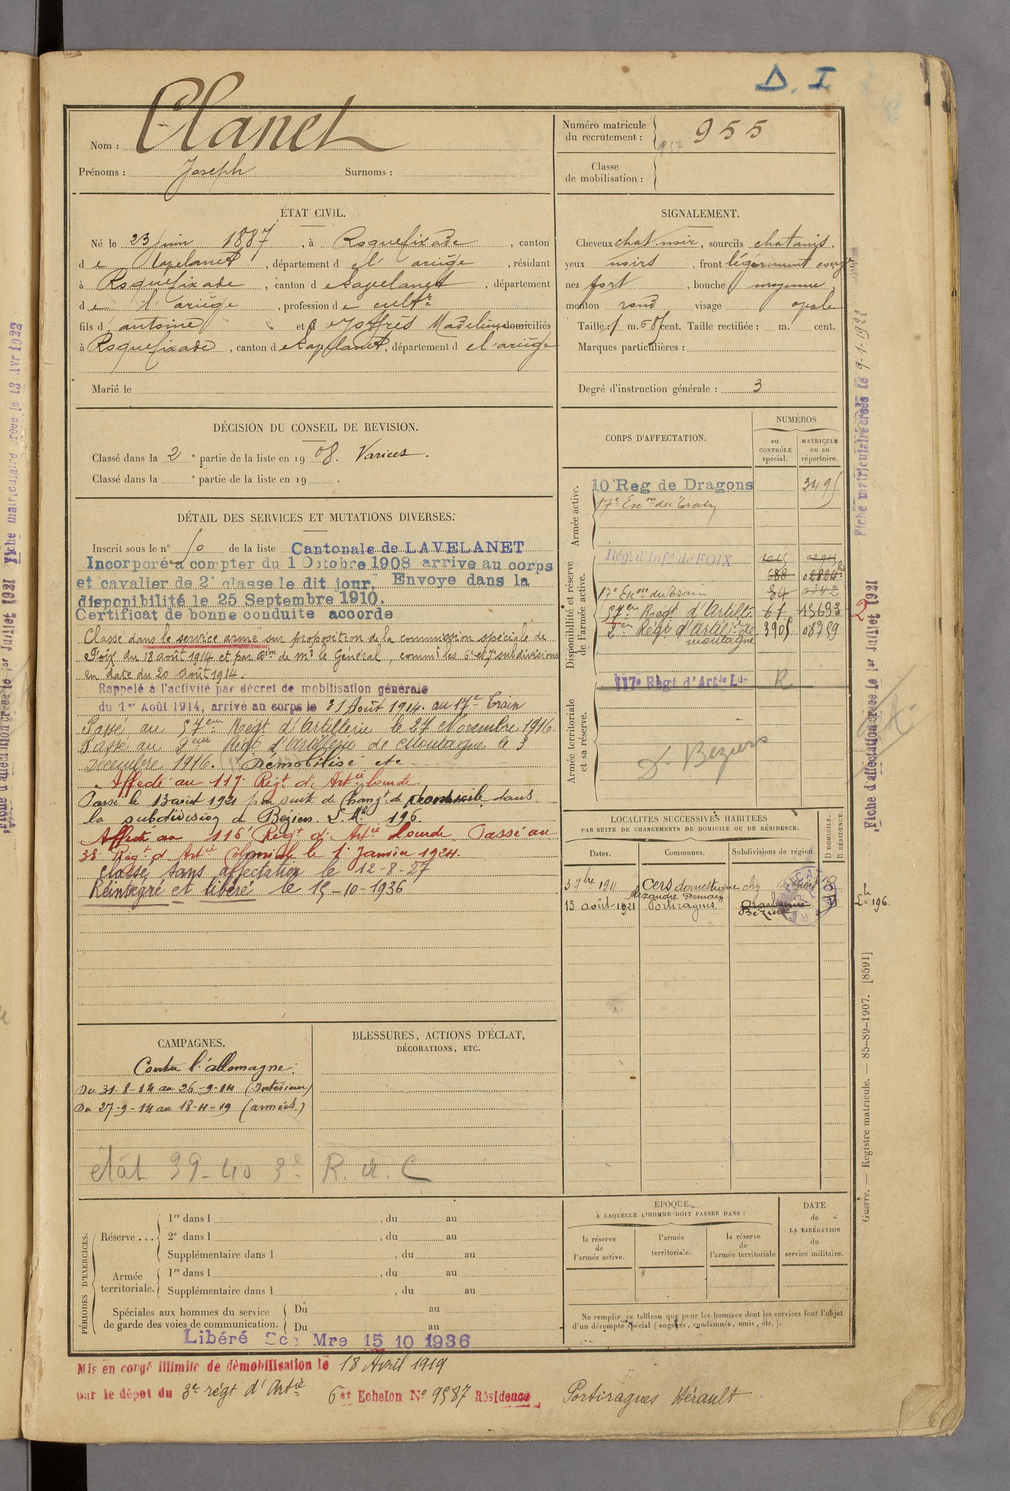 D. I
Nom : Clanet
Prénoms : Joseph Surnoms :
Numéro matricule du recrutement : 955
Classe de mobilisation :
ÉTAT CIVIL.
Né le 23 juin 1887, à Roquefixade, canton
de Lavelanet, département de l'ariège, résidant
à Roquefixade, canton de Lavelanet, département
de l'ariège, profession de cultr
fils d'antoine et de Joffrès Madeleine domiciliés
à Roquefixade, canton de Lavelanet, département de l'ariège
Marié le
SIGNALEMENT.
Cheveux chat. noir, sourcils chatains,
yeux noirs, front légèrement
nez fort, bouche moyenne,
menton rond visage ovale
Taille : 1 m. 68 cent. Taille rectifiée : m. cent.
Marques particulières :
Degré d'instruction générale : 3
DÉCISION DU CONSEIL DE REVISION.
Classé dans la 2e partie de la liste en 1908. Varices.
Classé dans la e partie de la liste en 19 .
DÉTAIL DES SERVICES ET MUTATIONS DIVERSES.
Inscrit sous le n° 50 de la liste Cantonale de LAVELANET
Incorporé à compter du 1 Octobre 1908 arrive au corps
et cavalier de 2e classe le dit jour. Envoye dans la
disponibilité le 25 Septembre 1910.
Certificat de bonne conduite accordé
Classé dans le service armé sur proposition de la commission spéciale de
Foix du 18 août 1914 et par de Mr le Général, commt les 6e et 7e subdivisions
en date du 20 août 1914.
Rappelé à l'activité par décret de mobilisation générale
du 1er Août 1914, arrivé au corps le 31 Août 1914. au 17e Train
Passé au 57eme Régt d'Artillerie le 27 Novembre 1916.
Passé au 2eme Régt d'artillerie de Montagne le 3
Décembre 1916. Démobilisé etc
Affecté au 117 Régt d. Artie Lourde
Passé le 13 août 1921 par suite de chang. d domicile dans
la subdivision de Béziers. 196.
Affecté au 116e Régt d. Artie Lourde. Passé au
38 Régt d. Artie Coloniale le 1er Janvier 1924.
Classé sans affectation le 12-8-27
Réintégré et libéré le 15-10-1936
CORPS D'AFFECTATION.
NUMÉROS
au CONTRÔLE spécial.
MATRICULE ou au répertoire.
Armée active.
10 Reg de Dragons 3495
17e Escon du Train
Disponibilité et réserve de l'armée active.
Rég. d'Infie de FOIX
17e Escon du Train 84
57eme Regt d'Artille. 61 15693
2eme Régt d'Artillie de montagne 3905 08789
Armée territoriale et sa réserve.
117e Régt d'Artie Lde R
D. Béziers
LOCALITÉS SUCCESSIVES HABITÉES
PAR SUITE DE CHANGEMENTS DE DOMICILE OU DE RÉSIDENCE.
Dates. Communes. Subdivisions de région. D DOMICILE. R RÉSIDENCE.
3 7bre 1911 Cers domestique chez
Alexandre Germain
13 août 1921 Portiragnes Béziers
196.
CAMPAGNES.
Contre l'allemagne :
Du 31-8-14 au 26-9-14 (Intérieur)
Du 27-9-14 au 18-4-19 (armées.)
BLESSURES, ACTIONS D'ÉCLAT,
DÉCORATIONS, ETC.
état 39-40 R. d. C
PÉRIODES D'EXERCICES.
Réserve . . .
1re dans l , du au
2e dans l , du au
Supplémentaire dans l , du au
Armée territoriale.
1re dans l , du au
Supplémentaire dans l , du au
Spéciales aux hommes du service de garde des voies de communication.
Du au
Du au
ÉPOQUE
À LAQUELLE L'HOMME DOIT PASSER DANS :
la réserve de l'armée active.
l'armée territoriale.
la réserve de l'armée territoriale
DATE de LA LIBÉRATION du service militaire.
Ne remplir ce tableau que pour les hommes dont les services font l'objet
d'un décompte spécial (engagés, condamnés, omis, etc.).
Libéré Mre 15 10 1936
Mis en congé illimité de démobilisation le 18 Avril 1919
par le dépôt du 3e régt d'Artie 6e Echelon No 9987 Résidence Portiragnes Hérault
Fiche matriculaire créée le 9-1-1922
Fiche d'affectation créée le 1er Juillet 1921
2
Guerre. — Registre matricule. — 85-89-1907. [8591]
Fiche matriculaire créée le 13 Avr 1923
Fiche d'affectation créée le 1er Juillet 1921